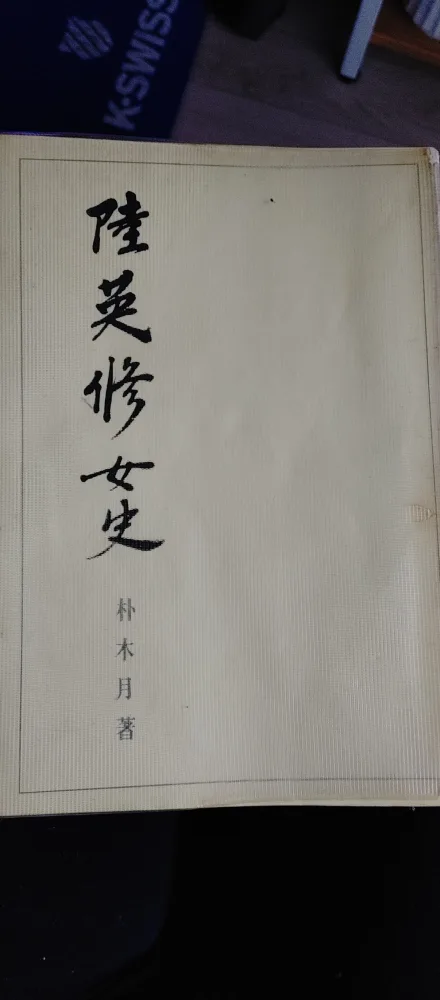 K·SWISS
陸英修女史
朴木月著